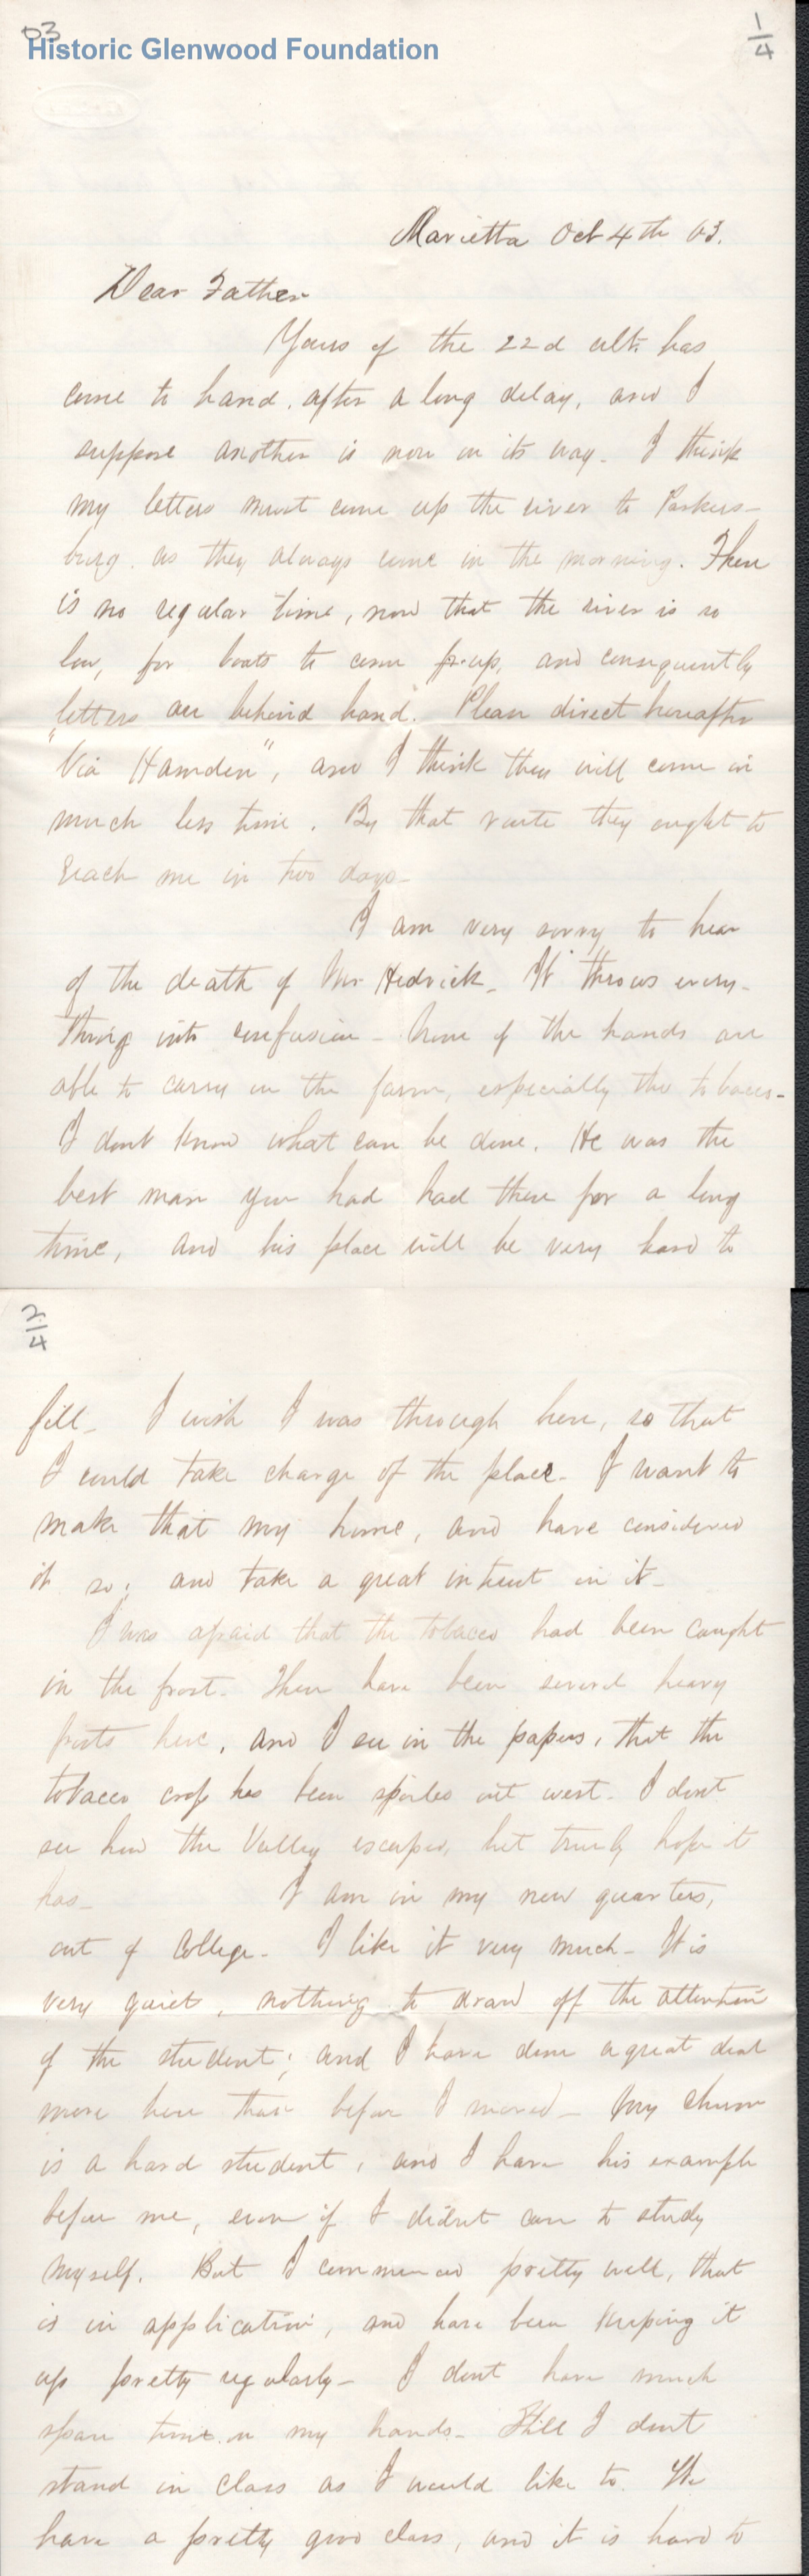 63
Historic Glenwood Foundation
1/4
Marietta Oct 4th 63.
Dear Father
Yours of the 22d ult. has
come to hand, after a long delay, and I
suppose another is now on its way. I think
my letters must come up the river to Parkers-
burg. as they always come in the morning. There
is no regular time, now that the river is so
low, for boats to come up, and consequently
letters are behind hand. Please direct hereafter
"Via Hamden", and I think they will come in
much less time. By that route they ought to
reach me in two days-
I am very sorry to hear
of the death of Mr Hedrick. It throws every-
thing into confusion - None of the hands are
able to carry on the farm, especially the tobacco-
I dont know what can be done. He was the
best man you had had there for a long
time, and his place will be very hard to
2/4
fill- I wish I was through here, so that
I could take charge of the place. I want to
make that my home, and have considered
it so; and take a great interest in it-
I was afraid that the tobacco had been caught
in the frost. There have been several heavy
frosts here, and I see in the papers, that the
tobacco crop has been spoiled out west. I dont
see how the Valley escaped, but truly hope it
has-
I am in my new quarters,
out of College. I like it very much- It is
very quiet, nothing to draw off the attention
of the student; and I have done a great deal
more here than before I moved- My chum
is a hard student, and I have his example
before me, even if I didnt care to study
myself. But I commenced pretty well, that
is in application, and have been keeping it
up pretty regularly- I dont have much
spare time on my hands- Still I dont
stand in class as I would like to. We
have a pretty good class, and it is hard to